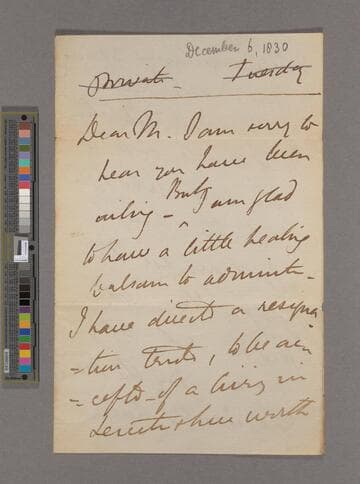 December 6, 1830
Private Tuesday
Dear M. I am sorry to
hear you have been
ailing - But I am glad
to have a little healing
balsam to administ-
I have direct a resigna
=tion tends, to be
=cepted - of a living in
Leicestershire worth